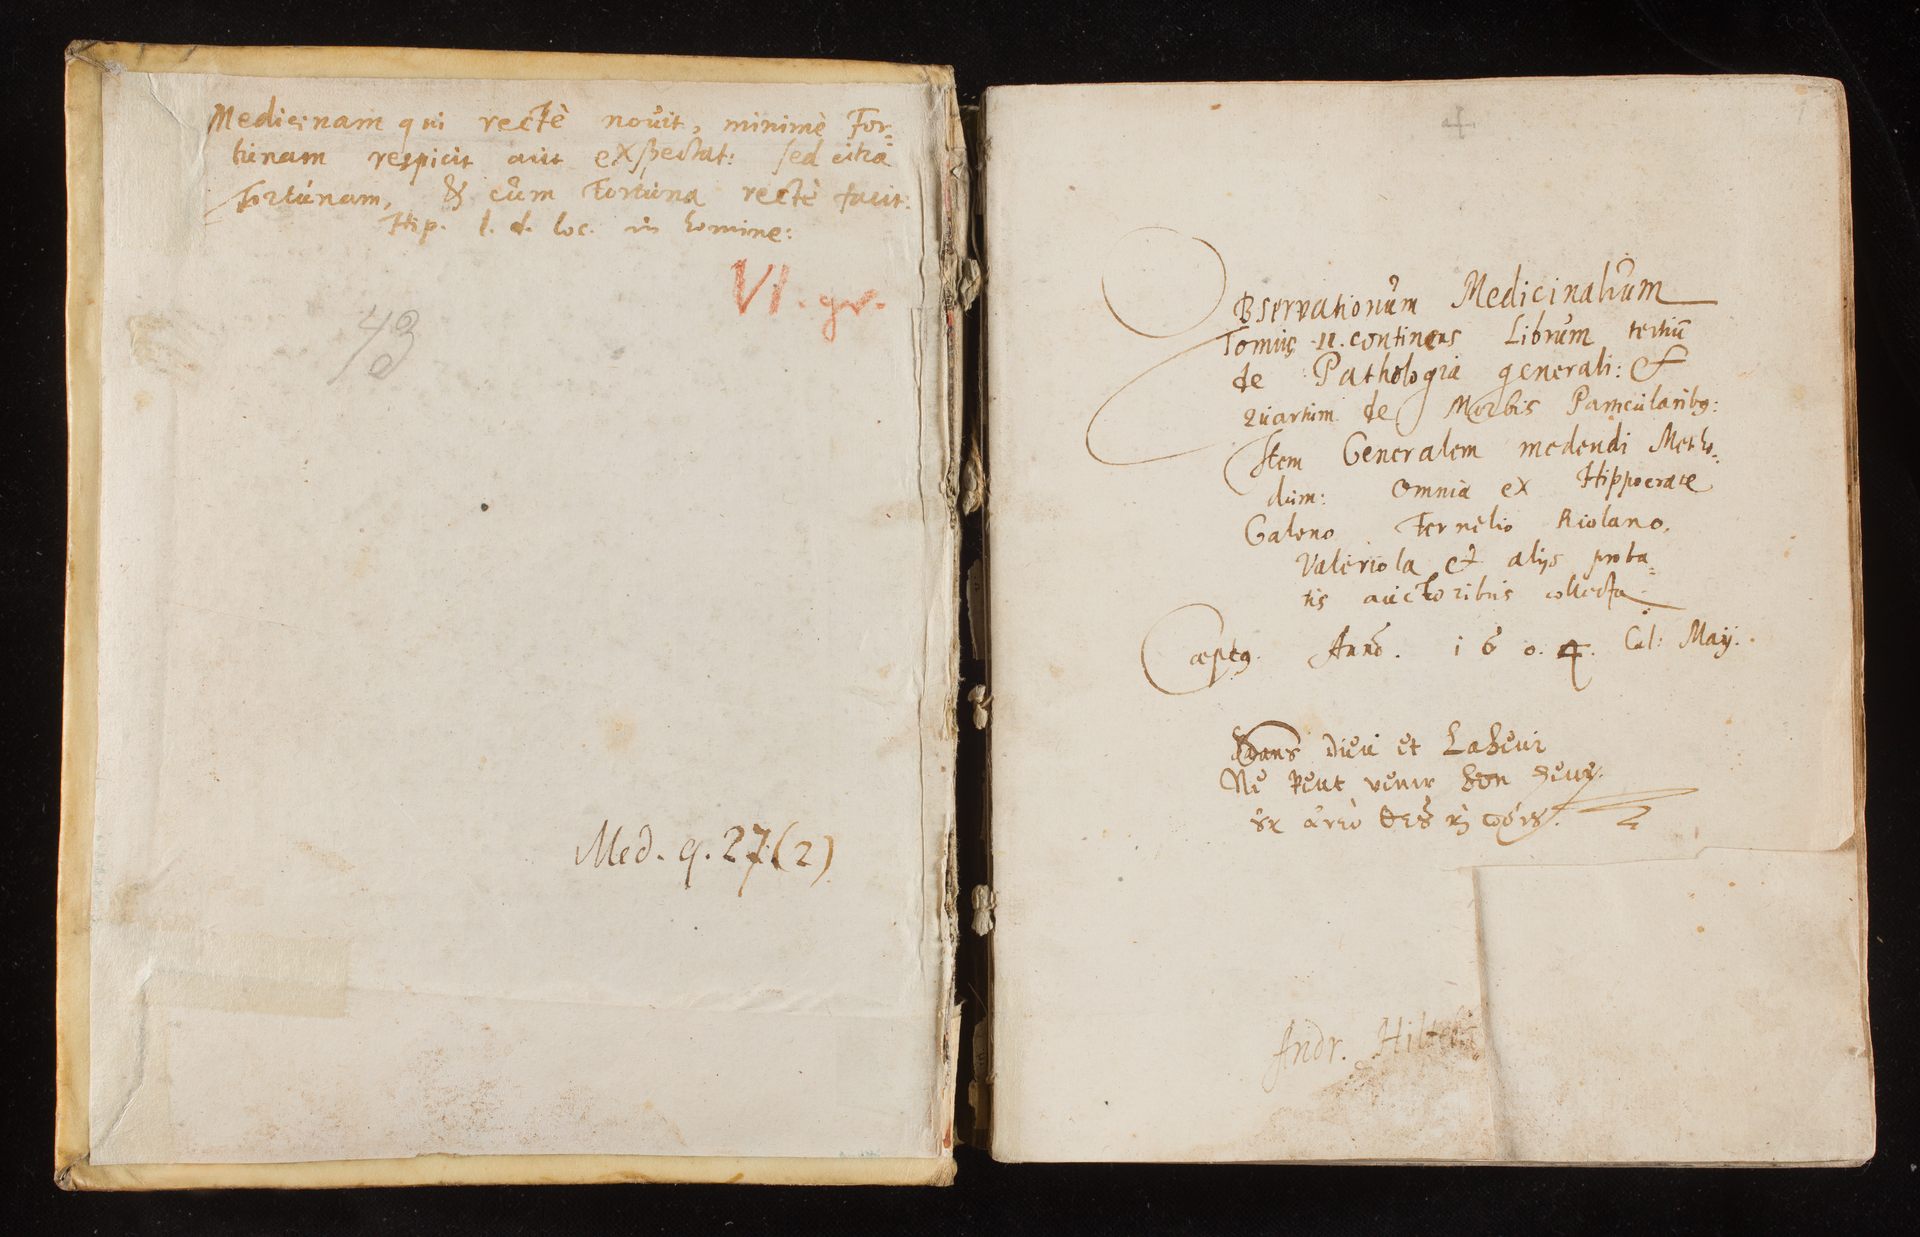 Medicinam qui rectè novit, minimè For-
tunam respicit aut exspectat: sed citra
Fortunam, & cum Fortuna rectè facit:
Hip. l. d. loc. in homine:
VI. gr.
43
Med. q. 27.(2)
1
Observationum Medicinalium
Tomus II. continens Librum tertiū
de Pathologia generali: &
quartum de Morbis Particularibꝯ:
Item Generalem medendi Metho-
dum: Omnia ex Hippocrate
Galeno Fernelio Riolano,
Valeriola et alijs proba-
tis auctoribus collecta.
Cœptꝯ. Anno. 1604. Cal: Maij.
Sans Dieu et Labeur
Ne Peut venir bon heur.
Andr. Hiltebr